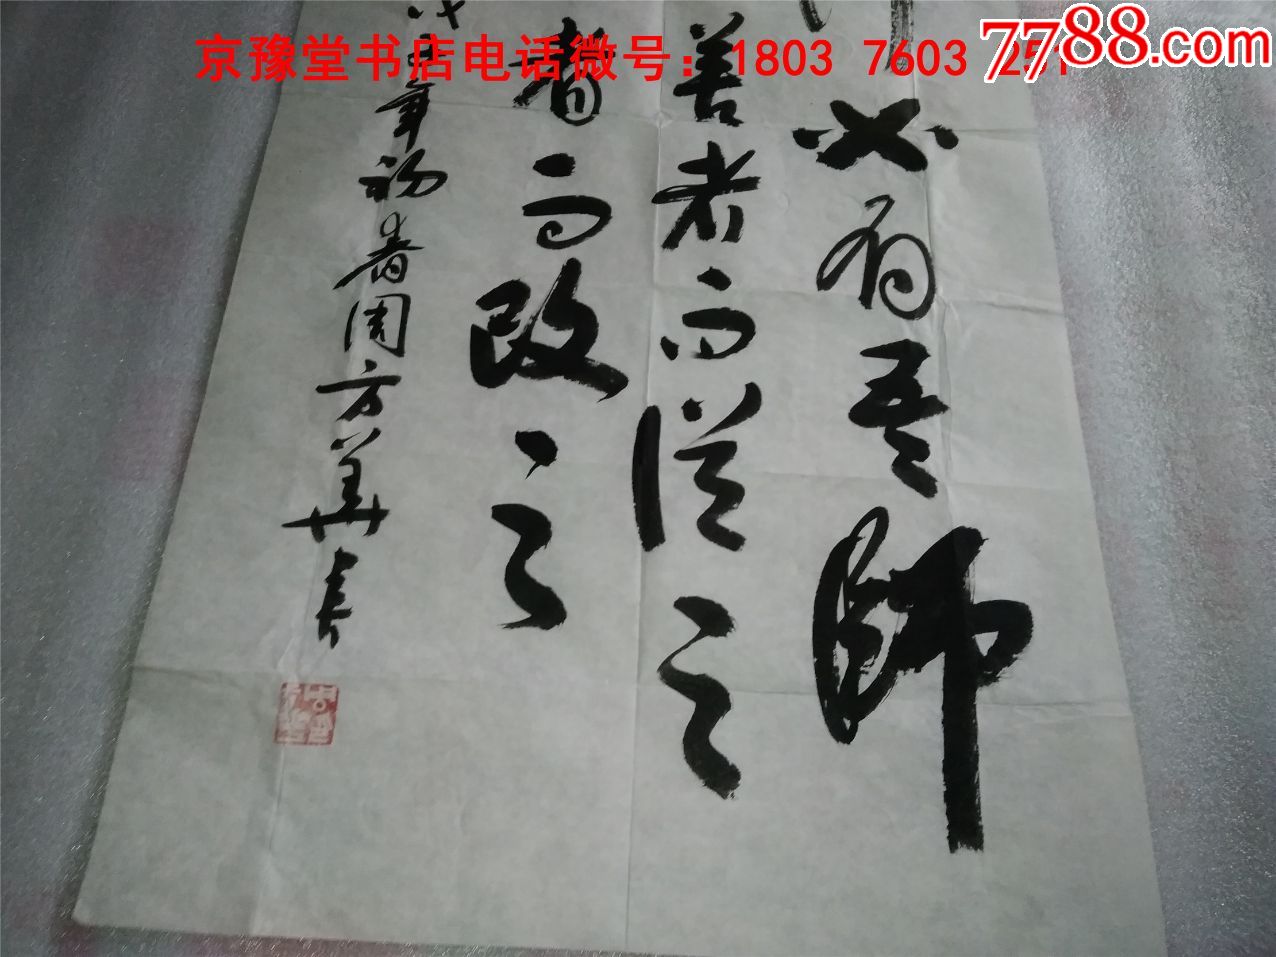 7788.com
京豫堂书店电话微号：1803 7603 251
必有吾師
善者而從之
者而改之
戊子年初春周方華书